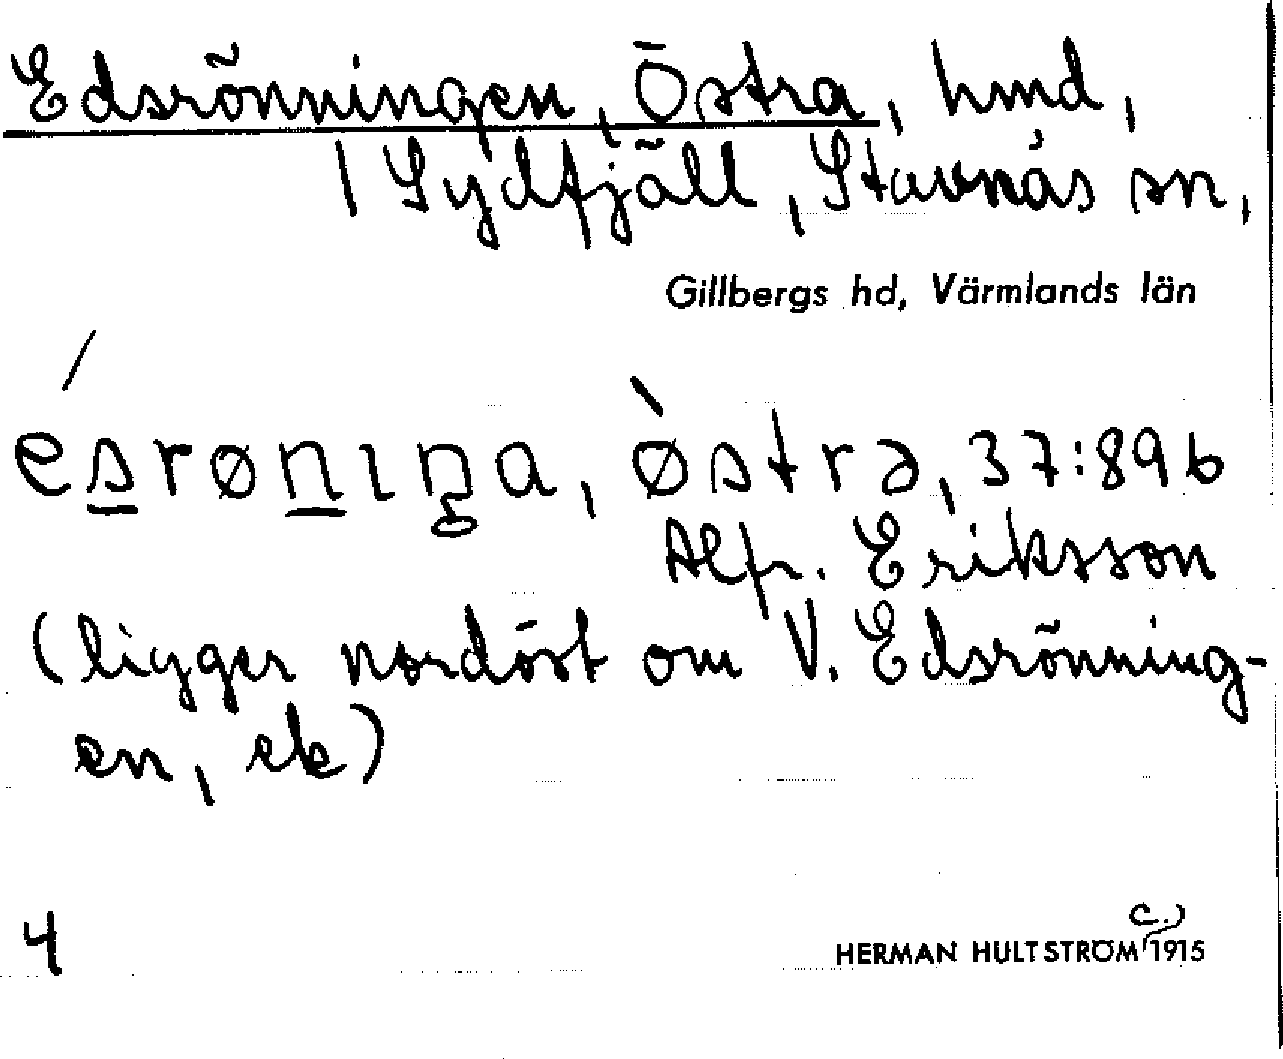 Edsrönningen, Östra, hmd,
/ Sydfjäll, Stavnäs sn,
Gillbergs hd, Värmlands län
ésrønıŋa, ø̀strə, 37:89 b
Alfr. Eriksson
(ligger nordöst om V. Edsrönning-
en, ek)
4
HERMAN HULTSTRÖM (c.) 1915